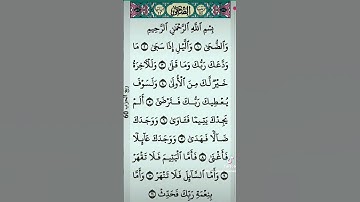 بِسْمِ اللَّهِ الرَّحْمَٰنِ الرَّحِيمِ
وَالضُّحَىٰ ۝ وَاللَّيْلِ إِذَا سَجَىٰ ۝ مَا
وَدَّعَكَ رَبُّكَ وَمَا قَلَىٰ ۝ وَلَلْآخِرَةُ
خَيْرٌ لَّكَ مِنَ الْأُولَىٰ ۝ وَلَسَوْفَ
يُعْطِيكَ رَبُّكَ فَتَرْضَىٰ ۝ أَلَمْ
يَجِدْكَ يَتِيمًا فَآوَىٰ ۝ وَوَجَدَكَ
ضَالًّا فَهَدَىٰ ۝ وَوَجَدَكَ عَائِلًا
فَأَغْنَىٰ ۝ فَأَمَّا الْيَتِيمَ فَلَا تَقْهَرْ
۝ وَأَمَّا السَّائِلَ فَلَا تَنْهَرْ ۝ وَأَمَّا
بِنِعْمَةِ رَبِّكَ فَحَدِّثْ ۝